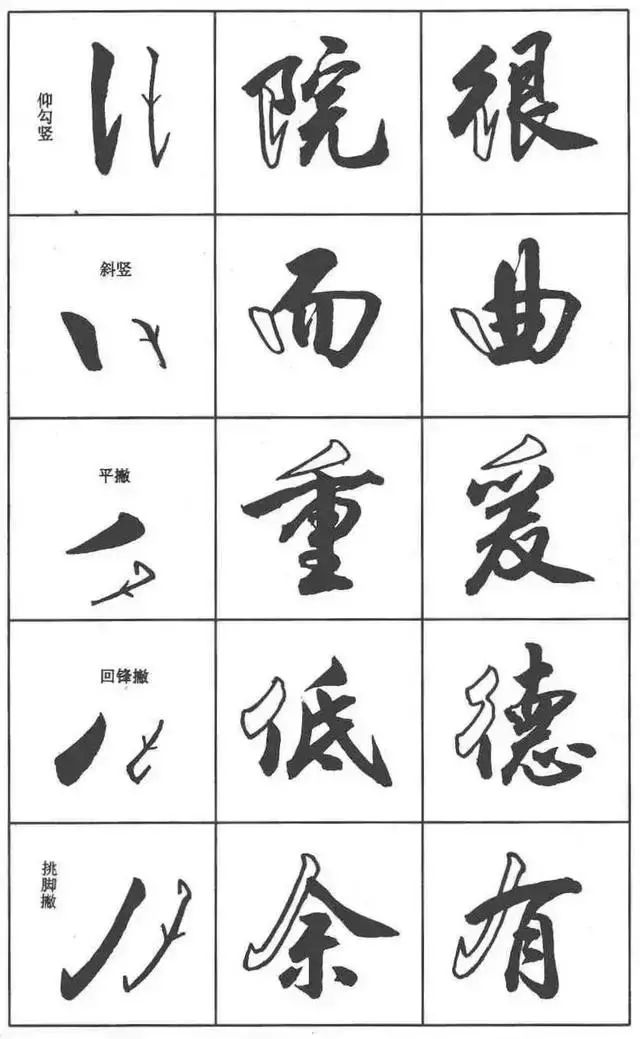 仰勾竖
院
很
斜竖
而
曲
平撇
重
爰
回锋撇
低
德
挑脚撇
余
有